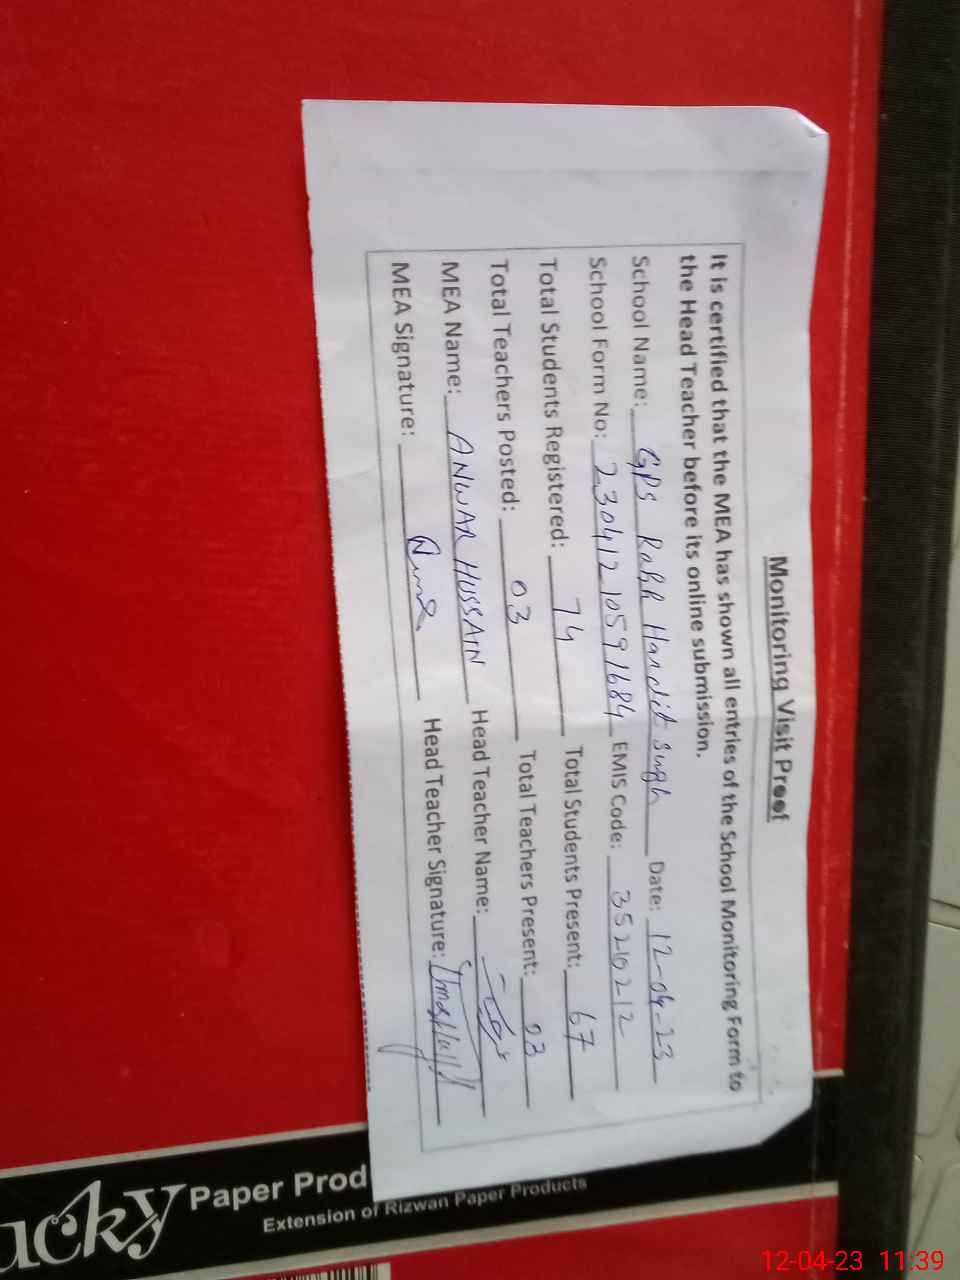 Monitoring Visit Proof
It is certified that the MEA has shown all entries of the School Monitoring Form to
the Head Teacher before its online submission.
School Name: GPS Rakh Handit Singh Date: 12-04-23
School Form No: 23041210591684 EMIS Code: 35210212
Total Students Registered: 74 Total Students Present: 67
Total Teachers Posted: 03 Total Teachers Present: 03
MEA Name: ANWAR HUSSAIN Head Teacher Name:
MEA Signature: Head Teacher Signature:
ucky Paper Prod
Extension of Rizwan Paper Products
12-04-23 11:39